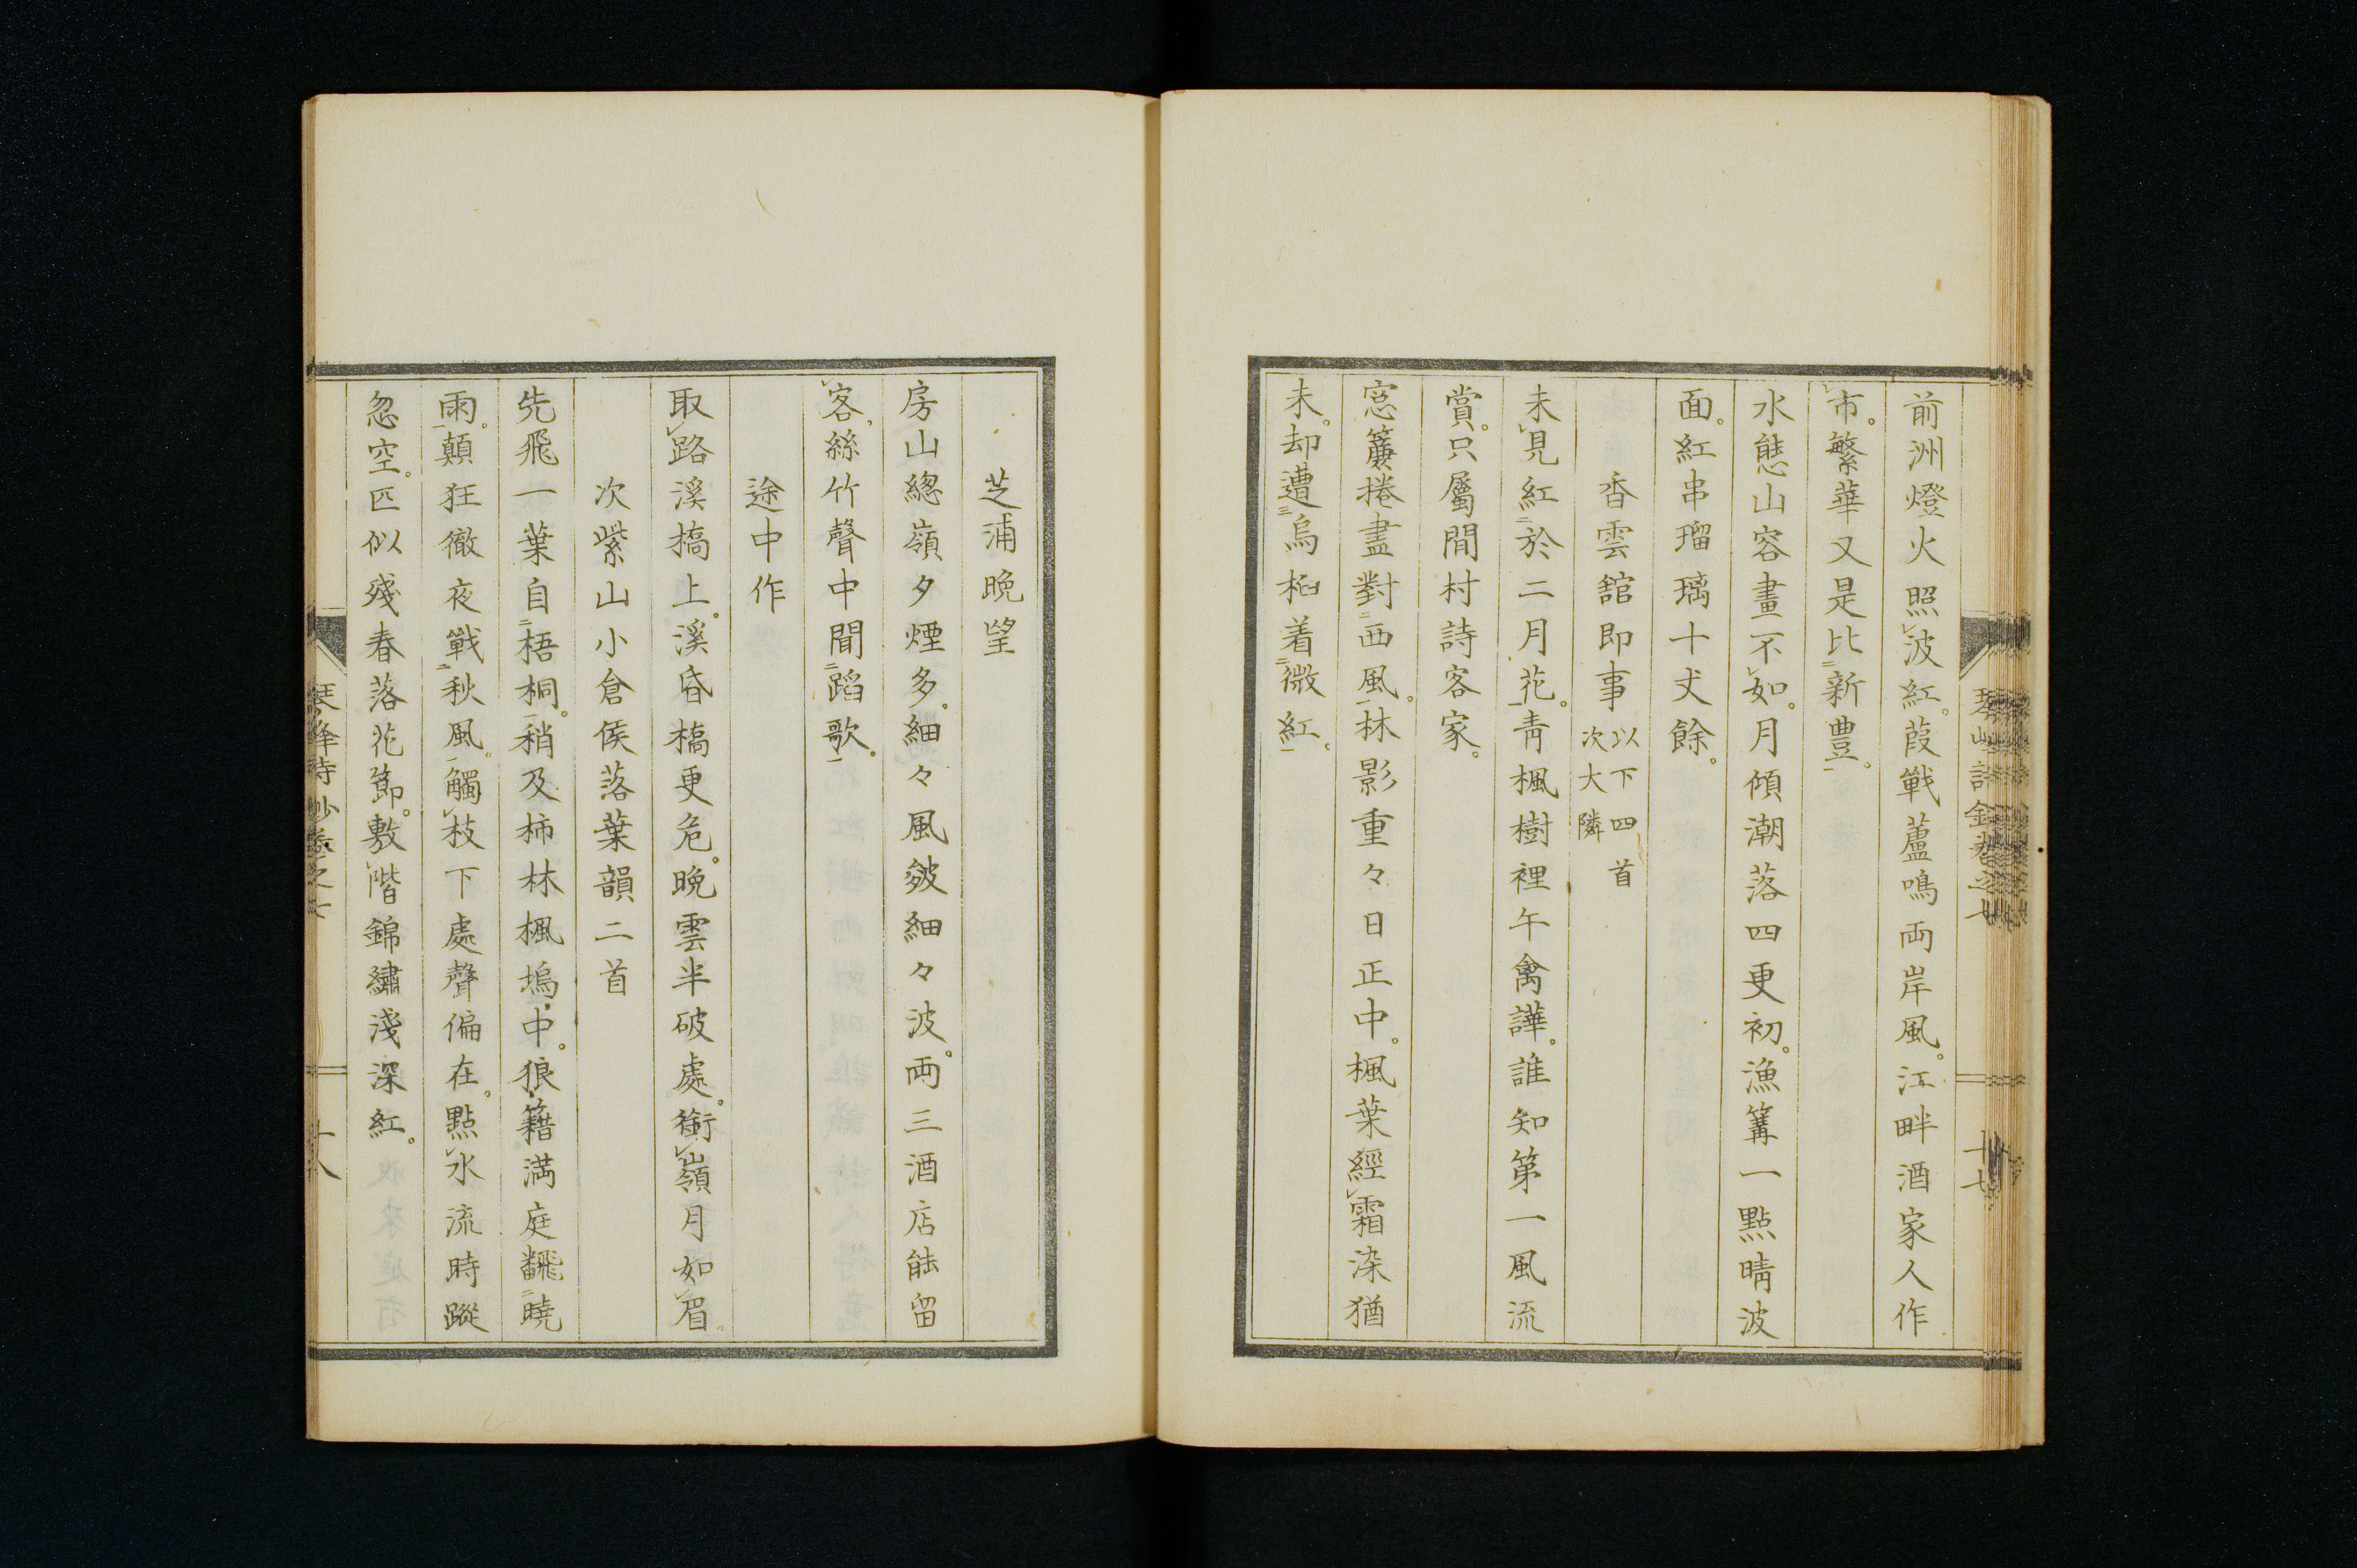 前洲燈火照波紅。葭戰蘆鳴両岸風。江畔酒家人作
市。繁華又是比新豊。
水態山容畫不如。月傾潮落四更初。漁篝一點晴波
面。紅串瑠璃十丈餘。
香雲舘即事
以下四首
次大隣
未見紅於二月花。青楓樹裡午禽譁。誰知第一風流
賞。只屬閒村詩客家。
窓簾捲盡對西風。林影重々日正中。楓葉經霜染猶
未。却遭烏桕着微紅。
芝浦晩望
房山總嶺夕煙多。細々風皴細々波。両三酒店能留
客、絲竹聲中聞蹈歌。
途中作
取路溪橋上。溪昏橋更危。晩雲半破處。銜嶺月如眉。
次紫山小倉侯落葉韻二首
先飛一葉自梧桐。稍及柿林楓塢中。狼籍満庭飜曉
雨。顛狂徹夜戰秋風。觸枝下處聲偏在。點水流時蹤
忽空。匹似殘春落花節。敷階錦繡淺深紅。
琴峰詩鈔卷之七
十八